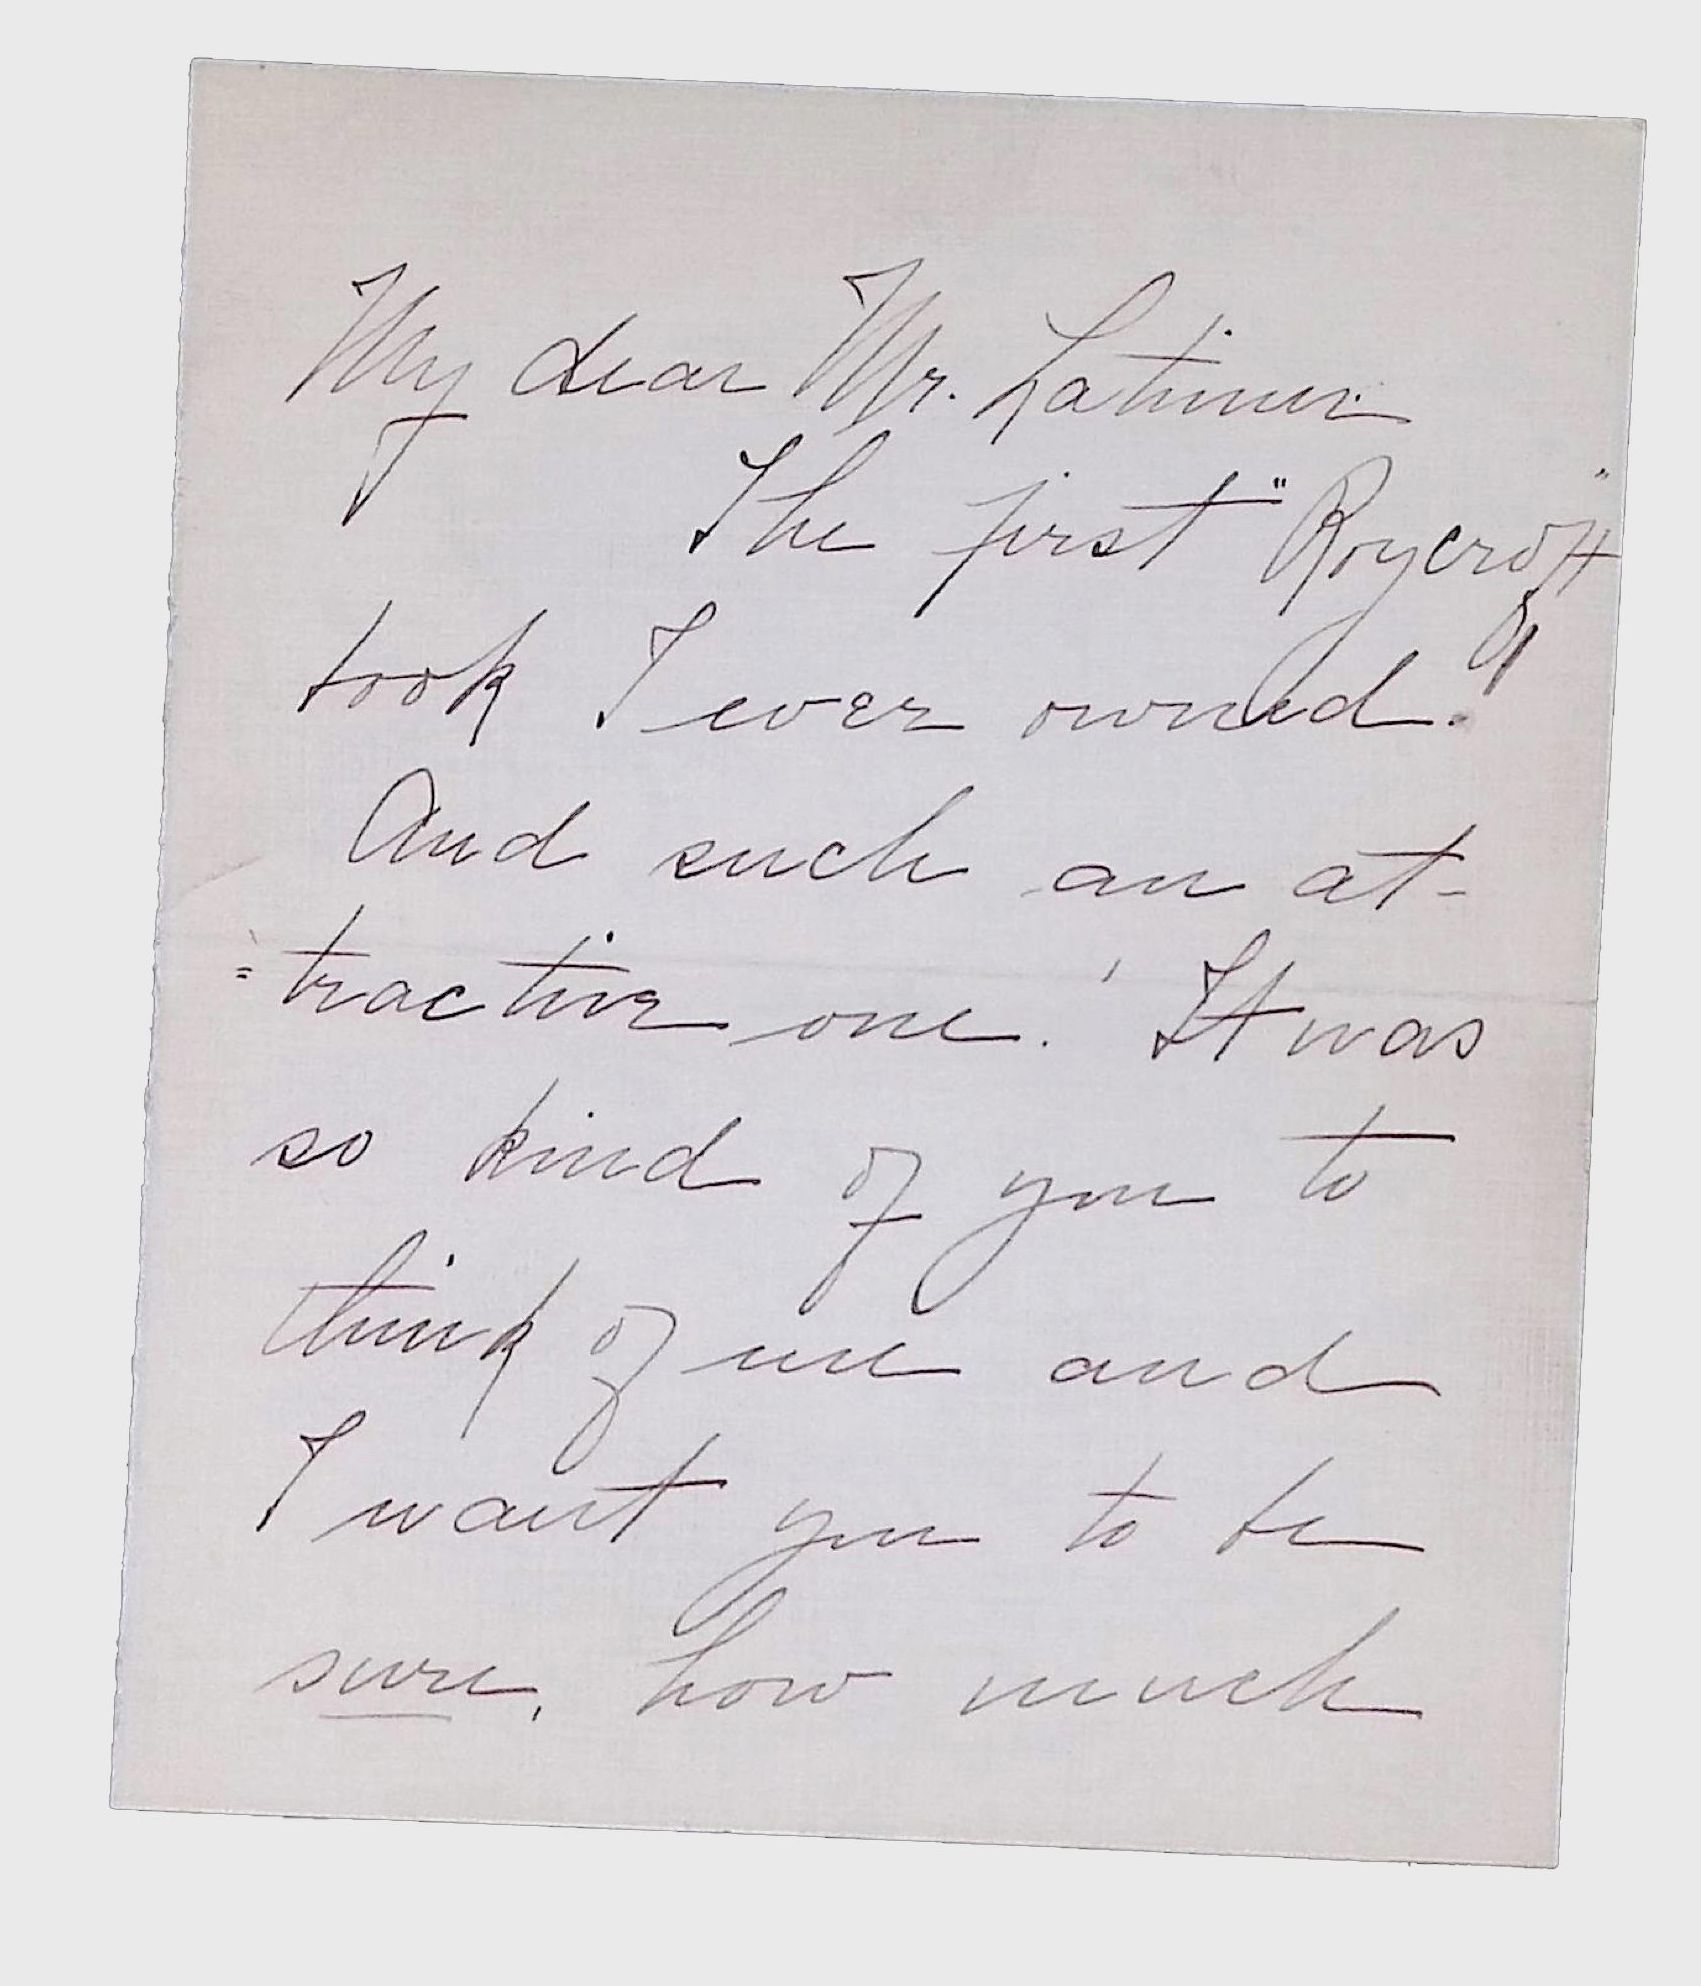 My dear Mr. Latimer.
The first "Roycroft"
book I ever owned.
And such an at-
=tractive one! It was
so kind of you to
think of me and
I want you to be
sure, how much